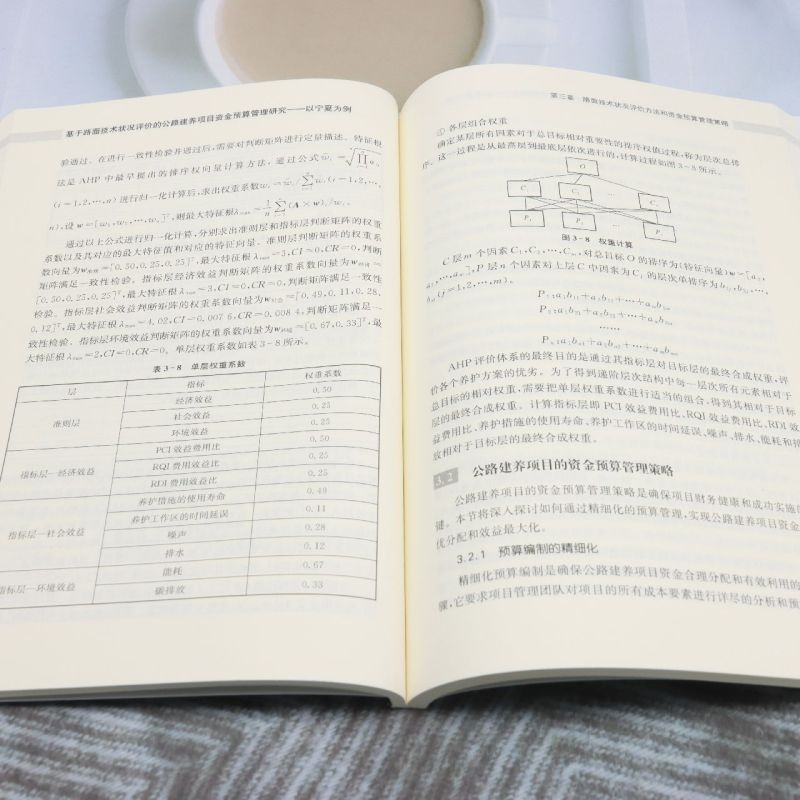 基于路面技术状况评价的公路建养项目资金预算管理研究——以宁夏为例
验通过。在进行一致性检验并通过后,需要对判断矩阵进行定量描述。特征根
法是 AHP 中最早提出的排序权向量计算方法,通过公式
(i=1,2,…,n) 进行归一化计算后,求出权重系数 (i=1,2,…,
n),设 w=[w₁,w₂,…,wₙ]ᵀ,则最大特征根λmax=1/n∑(A×w)ᵢ/wᵢ。
通过以上公式进行归一化计算,分别求出准则层和指标层判断矩阵的权重
系数以及其对应的最大特征值和对应的特征向量。准则层判断矩阵的权重系
数向量为w=[0.50,0.25,0.25]ᵀ,最大特征根λmax=3,CI=0,CR=0,判断
矩阵满足一致性检验。指标层经济效益判断矩阵的权重系数向量为w经济=
[0.50,0.25,0.25]ᵀ,最大特征根λmax=3,CI=0,CR=0,判断矩阵满足一致性
检验。指标层社会效益判断矩阵的权重系数向量为w社会=[0.49,0.11,0.28,
0.12]ᵀ,最大特征根λmax=4.02,CI=0.007 6,CR=0.008 4,判断矩阵满足一
致性检验。指标层环境效益判断矩阵的权重系数向量为w环境=[0.67,0.33]ᵀ,最
大特征根λmax=2,CI=0,CR=0。单层权重系数如表3-8所示。
表 3-8 单层权重系数
层 指标 权重系数
准则层 经济效益 0.50
社会效益 0.25
环境效益 0.25
指标层—经济效益 PCI 效益费用比 0.50
RQI 费用效益比 0.25
RDI 费用效益比 0.25
指标层—社会效益 养护措施的使用寿命 0.49
养护工作区的时间延误 0.11
噪声 0.28
排水 0.12
指标层—环境效益 能耗 0.67
碳排放 0.33
第三章 路面技术状况评价方法和资金预算管理策略
④ 各层组合权重
确定某层所有因素对于总目标相对重要性的排序权值过程,称为层次总排
序。这一过程是从最高层到最底层依次进行的,计算过程如图3-8所示。
O
C₁ C₂ … Cₘ
P₁ P₂ … Pₙ
图 3-8 权重计算
C 层 m 个因素 C₁,C₂,…,Cₘ,对总目标 O 的排序为(特征向量)w=[a₁,
a₂,…,aₘ]ᵀ,P 层 n 个因素对上层 C 中因素为 Cⱼ 的层次单排序为 b₁ⱼ,b₂ⱼ,…,
bₙⱼ(j=1,2,…,m)。
P₁:a₁b₁₁+a₂b₁₂+…+aₘb₁ₘ
P₂:a₁b₂₁+a₂b₂₂+…+aₘb₂ₘ
……
Pₙ:a₁bₙ₁+a₂bₙ₂+…+aₘbₙₘ
AHP 评价体系的最终目的是通过其指标层对目标层的最终合成权重,评
价各个养护方案的优劣。为了得到递阶层次结构中每一层次所有元素相对于
总目标的相对权重,需要把单层权重系数进行适当的组合,得到其相对于目标
层的最终合成权重。计算指标层即 PCI 效益费用比、RQI 效益费用比、RDI 效
益费用比、养护措施的使用寿命、养护工作区的时间延误、噪声、排水、能耗和排
放相对于目标层的最终合成权重。
3.2 公路建养项目的资金预算管理策略
公路建养项目的资金预算管理策略是确保项目财务健康和成功实施的
键。本节将深入探讨如何通过精细化的预算管理,实现公路建养项目资金
优分配和效益最大化。
3.2.1 预算编制的精细化
精细化预算编制是确保公路建养项目资金合理分配和有效利用的
骤,它要求项目管理团队对项目的所有成本要素进行详尽的分析和预